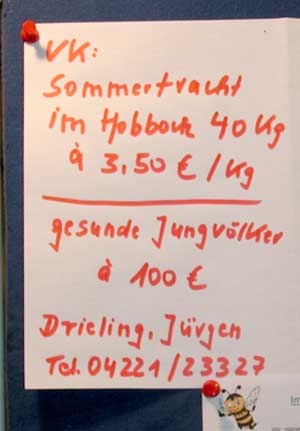 VK:
Sommertracht
im Hobbock 40 Kg
à 3,50 € / Kg
gesunde Jungvölker
à 100 €
Drieling, Jürgen
Tel. 04221/23327
Im